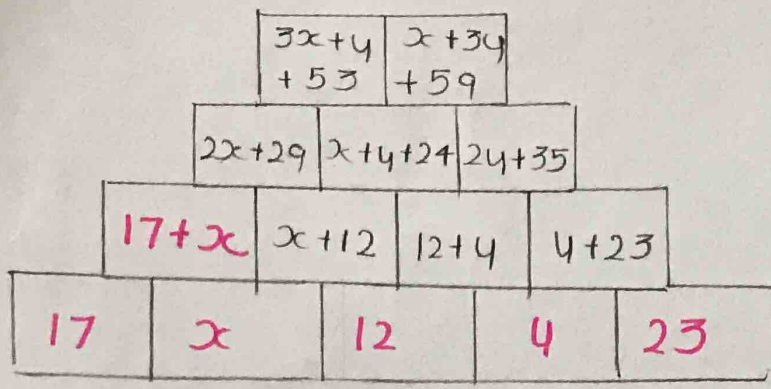 3x+y x+3y
+53 +59
2x+29 x+y+24 2y+35
17+x x+12 12+y y+23
17 x 12 y 23